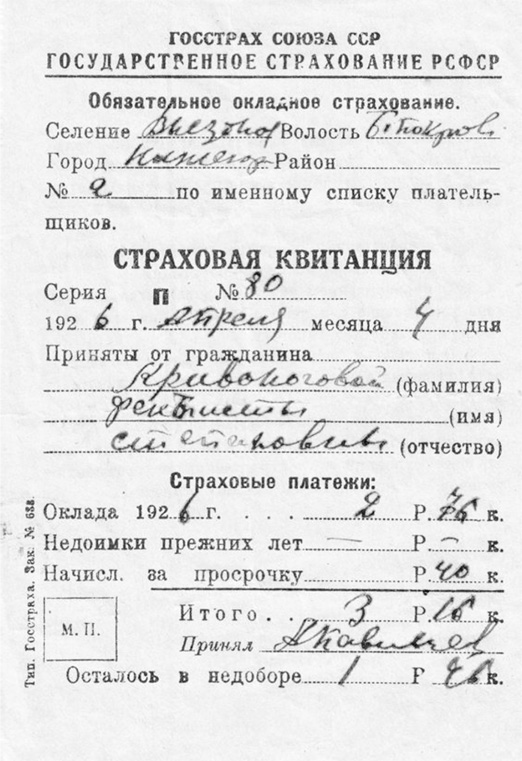 ГОССТРАХ СОЮЗА ССР
ГОСУДАРСТВЕННОЕ СТРАХОВАНИЕ РСФСР
Обязательное окладное страхование.
Селение Волость
Город Район
№ 2 по именному списку платель-
щиков.
СТРАХОВАЯ КВИТАНЦИЯ
Серия П № 80
1926 г. Апреля месяца 4 дня
Приняты от гражданина
Кривоноговой (фамилия)
Феклисты (имя)
Степановны (отчество)
Страховые платежи:
Оклада 1926 г. 2 Р. 76 к.
Недоимки прежних лет — Р. — к.
Начисл. за просрочку Р. 40 к.
Итого 3 Р. 16 к.
М. П.
Принял
Осталось в недоборе 1 Р 46 к.
Тип. Госстраха. Зак. №